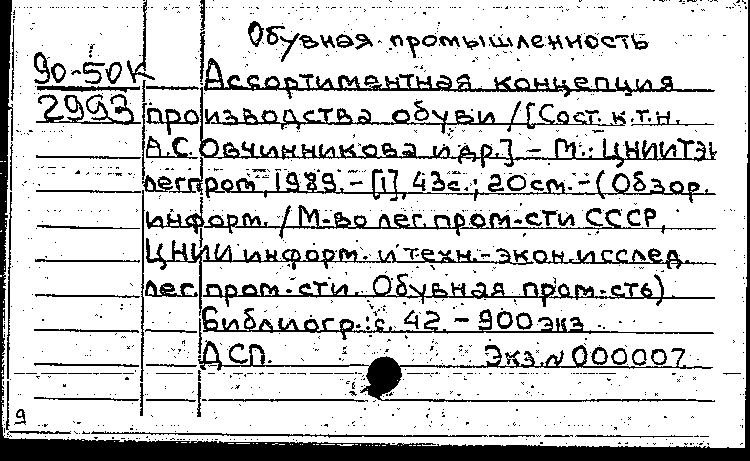 Обувная промышленность
90-50К Ассортиментная концепция
2993 производства обуви / [Сост. к.т.н.
А.С. Овчинникова и др.] – М.: ЦНИИТЭИ
легпром, 1989. – [1], 43 с.; 20 см. – (Обзор.
информ. / М-во лег. пром-сти СССР,
ЦНИИ информ. и техн.-экон. исслед.
лег. пром-сти. Обувная пром-сть)
Библиогр.: с. 42 – 900 экз
ДСП. Экз. № 000007
9